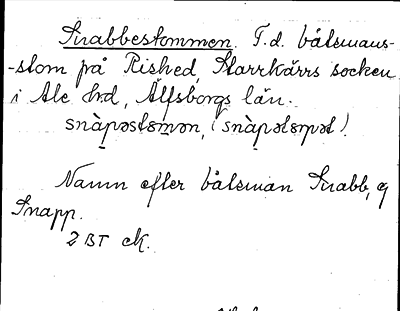 Snabbestommen. F.d. båtsmans-
-stom på Rished, Starrkärrs socken
i Ale hd, Älfsborgs län.
snàpəstɷmən, (snàpətɷrpət).
Namn efter båtsman Snabb, ej
Snapp.
2 BT ek.